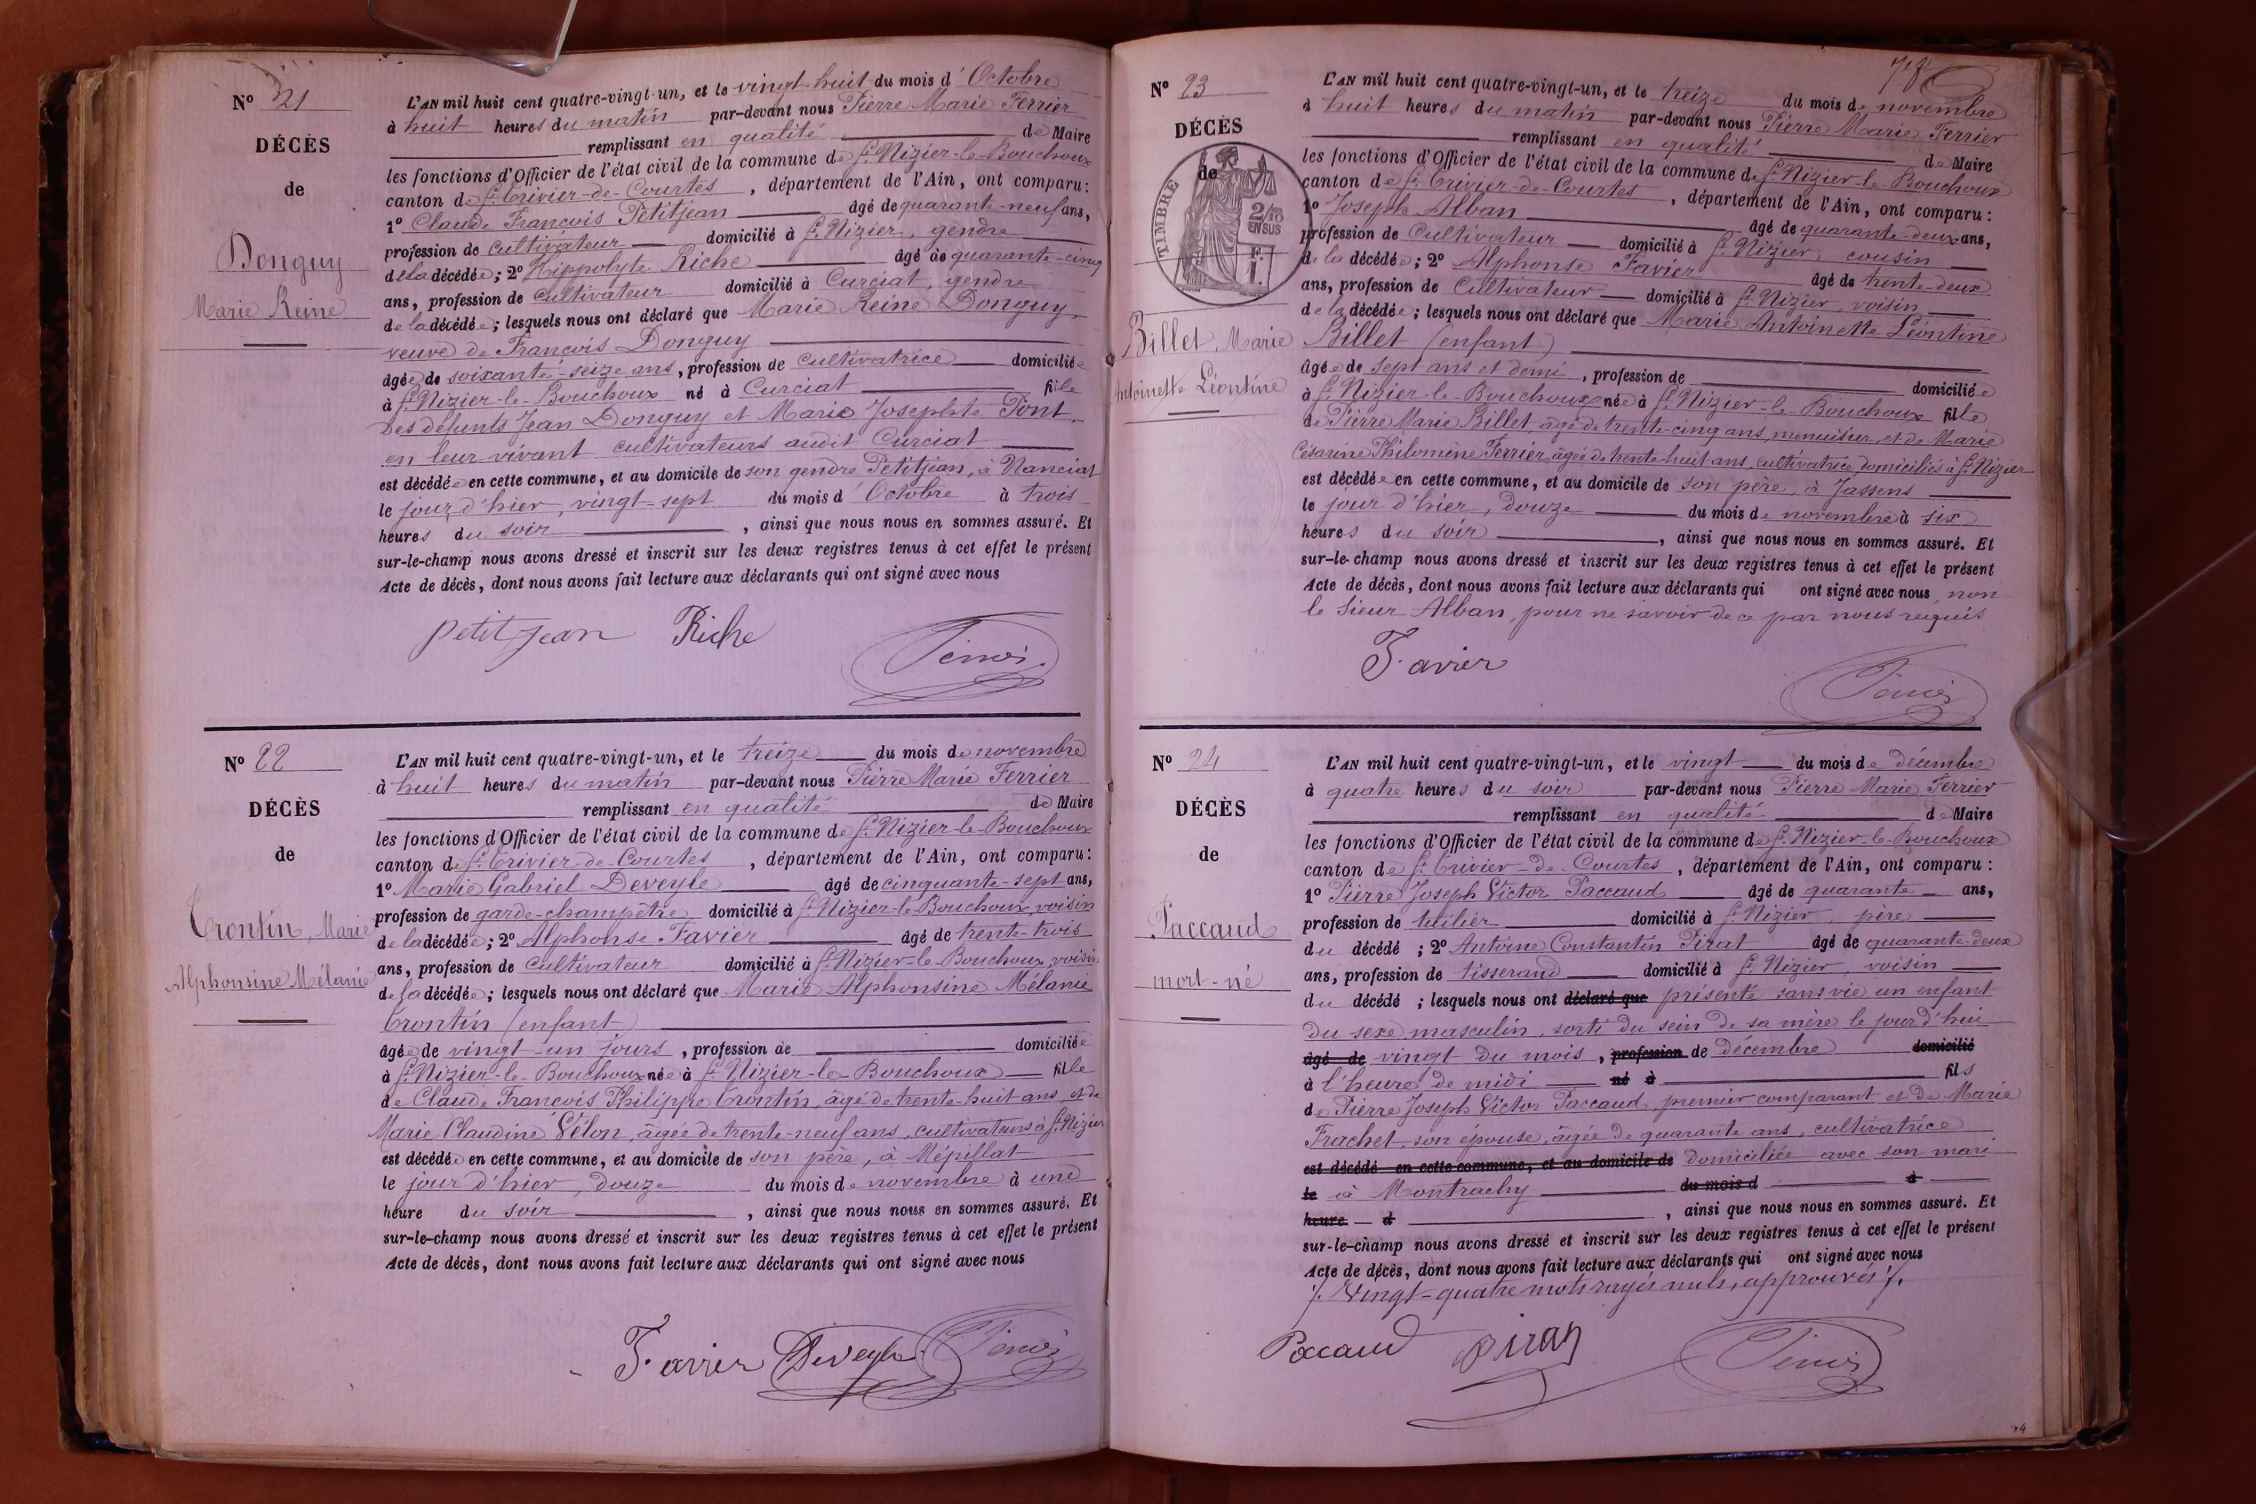 Nº 21
DÉCÈS
de
Donguy
Marie Reine
L'AN mil huit cent quatre-vingt-un, et le vingt-huit du mois d'Octobre
à huit heures du matin par-devant nous Pierre Marie Ferrier
remplissant en qualité de Maire
les fonctions d'Officier de l'état civil de la commune de St Nizier-le-Bouchoux
canton de St Trivier-de-Courtes, département de l'Ain, ont comparu:
1º Claude François Petitjean âgé de quarante-neuf ans,
profession de cultivateur domicilié à St Nizier, gendre
de la décédée; 2º Hippolyte Riche âgé de quarante-cinq
ans, profession de cultivateur domicilié à Curciat, gendre
de la décédée; lesquels nous ont déclaré que Marie Reine Donguy,
veuve de François Donguy
âgée de soixante-seize ans, profession de cultivatrice domiciliée
à St Nizier-le-Bouchoux né à Curciat fille
des défunts Jean Donguy et Marie Josephte Pont,
en leur vivant cultivateurs audit Curciat
est décédée en cette commune, et au domicile de son gendre Petitjean, à Nanciat
le jour d'hier, vingt-sept du mois d'Octobre à trois
heures du soir, ainsi que nous nous en sommes assuré. Et
sur-le-champ nous avons dressé et inscrit sur les deux registres tenus à cet effet le présent
Acte de décès, dont nous avons fait lecture aux déclarants qui ont signé avec nous
petitjean Riche
Nº 22
DÉCÈS
de
Trontin, Marie
Alphonsine Mélanie
L'AN mil huit cent quatre-vingt-un, et le treize du mois de novembre
à huit heures du matin par-devant nous Pierre Marie Ferrier
remplissant en qualité de Maire
les fonctions d'Officier de l'état civil de la commune de St Nizier-le-Bouchoux
canton de St Trivier-de-Courtes, département de l'Ain, ont comparu:
1º Marie Gabriel Deveyle âgé de cinquante-sept ans,
profession de garde-champêtre domicilié à St Nizier-le-Bouchoux, voisin
de la décédée; 2º Alphonse Favier âgé de trente-trois
ans, profession de cultivateur domicilié à St Nizier-le-Bouchoux, voisin
de la décédée; lesquels nous ont déclaré que Marie Alphonsine Mélanie
Trontin (enfant)
âgée de vingt-un jours, profession de domiciliée
à St Nizier-le-Bouchoux née à St Nizier-le-Bouchoux fille
de Claude François Philippe Trontin, âgé de trente-huit ans et de
Marie Claudine Vélon, âgée de trente-neuf ans, cultivateurs à St Nizier
est décédée en cette commune, et au domicile de son père, à Mépillat
le jour d'hier, douze du mois de novembre à une
heure du soir, ainsi que nous nous en sommes assuré. Et
sur-le-champ nous avons dressé et inscrit sur les deux registres tenus à cet effet le présent
Acte de décès, dont nous avons fait lecture aux déclarants qui ont signé avec nous
Favier Deveyle
Nº 23
DÉCÈS
de
TIMBRE
2/10 EN SUS
F. 1.
Billet, Marie
Antoinette Léontine
L'AN mil huit cent quatre-vingt-un, et le treize du mois de novembre
à huit heures du matin par-devant nous Pierre Marie Ferrier
remplissant en qualité de Maire
les fonctions d'Officier de l'état civil de la commune de St Nizier-le-Bouchoux
canton de St Trivier-de-Courtes, département de l'Ain, ont comparu:
1º Joseph Alban âgé de quarante-deux ans,
profession de Cultivateur domicilié à St Nizier, cousin
de la décédée; 2º Alphonse Favier âgé de trente-deux
ans, profession de Cultivateur domicilié à St Nizier, voisin
de la décédée; lesquels nous ont déclaré que Marie Antoinette Léontine
Billet (enfant)
âgée de sept ans et demi, profession de domiciliée
à St Nizier-le-Bouchoux née à St Nizier-le-Bouchoux fille
de Pierre Marie Billet, âgé de trente-cinq ans, menuisier et de Marie
Césarine Philomène Ferrier, âgée de trente-huit ans, cultivatrice, domiciliés à St Nizier
est décédée en cette commune, et au domicile de son père, à Jassens
le jour d'hier, douze du mois de novembre à six
heures du soir, ainsi que nous nous en sommes assuré. Et
sur-le-champ nous avons dressé et inscrit sur les deux registres tenus à cet effet le présent
Acte de décès, dont nous avons fait lecture aux déclarants qui ont signé avec nous, non
le Sieur Alban, pour ne savoir de ce par nous requis
Favier
Nº 24
DÉCÈS
de
Paccaud
mort-né
L'AN mil huit cent quatre-vingt-un, et le vingt du mois de décembre
à quatre heures du soir par-devant nous Pierre Marie Ferrier
remplissant en qualité de Maire
les fonctions d'Officier de l'état civil de la commune de St Nizier-le-Bouchoux
canton de St Trivier-de-Courtes, département de l'Ain, ont comparu:
1º Pierre Joseph Victor Paccaud âgé de quarante ans,
profession de tuilier domicilié à St Nizier, père
du décédé; 2º Antoine Constantin Pirat âgé de quarante-deux
ans, profession de tisserand domicilié à St Nizier, voisin
du décédé; lesquels nous ont déclaré que présenté sans vie un enfant
du sexe masculin, sorti du sein de sa mère le jour d'hui
âgé de vingt du mois, profession de décembre domicilié
à l'heure de midi né à fils
de Pierre Joseph Victor Paccaud, premier comparant et de Marie
Frachet, son épouse, âgée de quarante ans, cultivatrice
est décédé en cette commune, et au domicile de domiciliée avec son mari
le à Montrachy du mois d à
heure d, ainsi que nous nous en sommes assuré. Et
sur-le-champ nous avons dressé et inscrit sur les deux registres tenus à cet effet le présent
Acte de décès, dont nous avons fait lecture aux déclarants qui ont signé avec nous
Vingt-quatre mots rayés nuls, approuvés
Paccaud Pirat